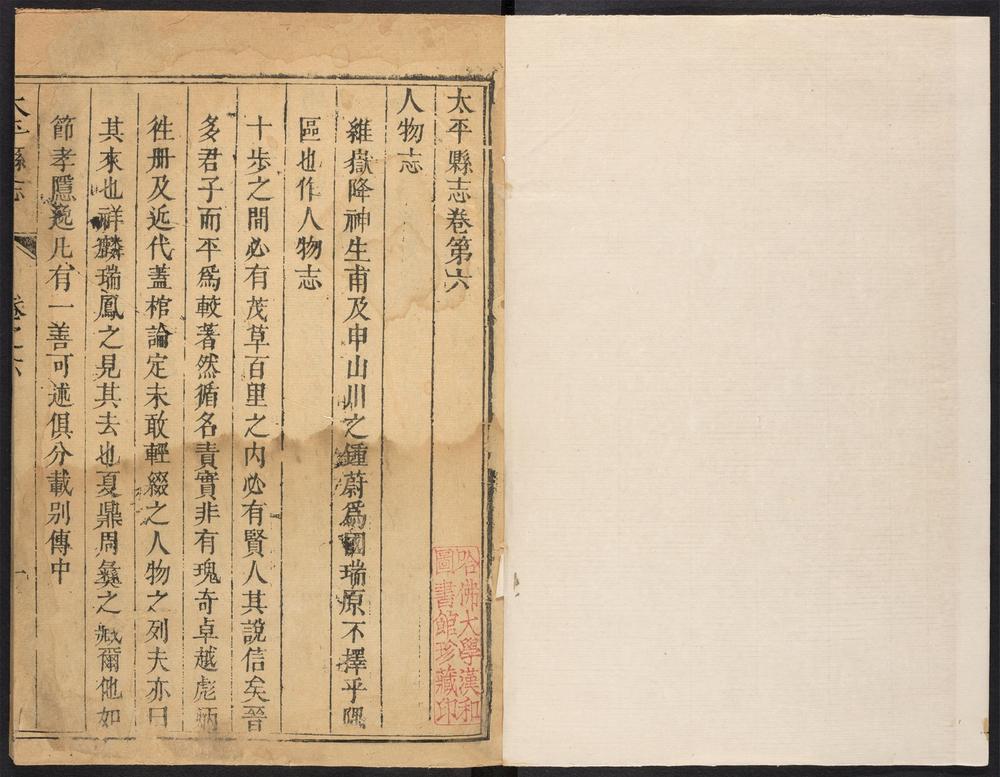 太平縣志卷第六
人物志
維嶽降神生甫及申山川之鍾蔚為國瑞原不擇乎隅
區也作人物志
十步之間必有茂草百里之内必有賢人其說信矣晉
多君子而平爲較著然循名責實非有瑰奇卓越彪炳
徃册及近代蓋棺論定未敢輕綴之人物之列夫亦曰
其來也祥麟瑞鳳之見其去也夏鼎周彝之藏爾他如
節孝隱逸凡有一善可述俱分載别傳中
太平縣志 卷之六 一
哈佛大學漢和
圖書館珍藏印